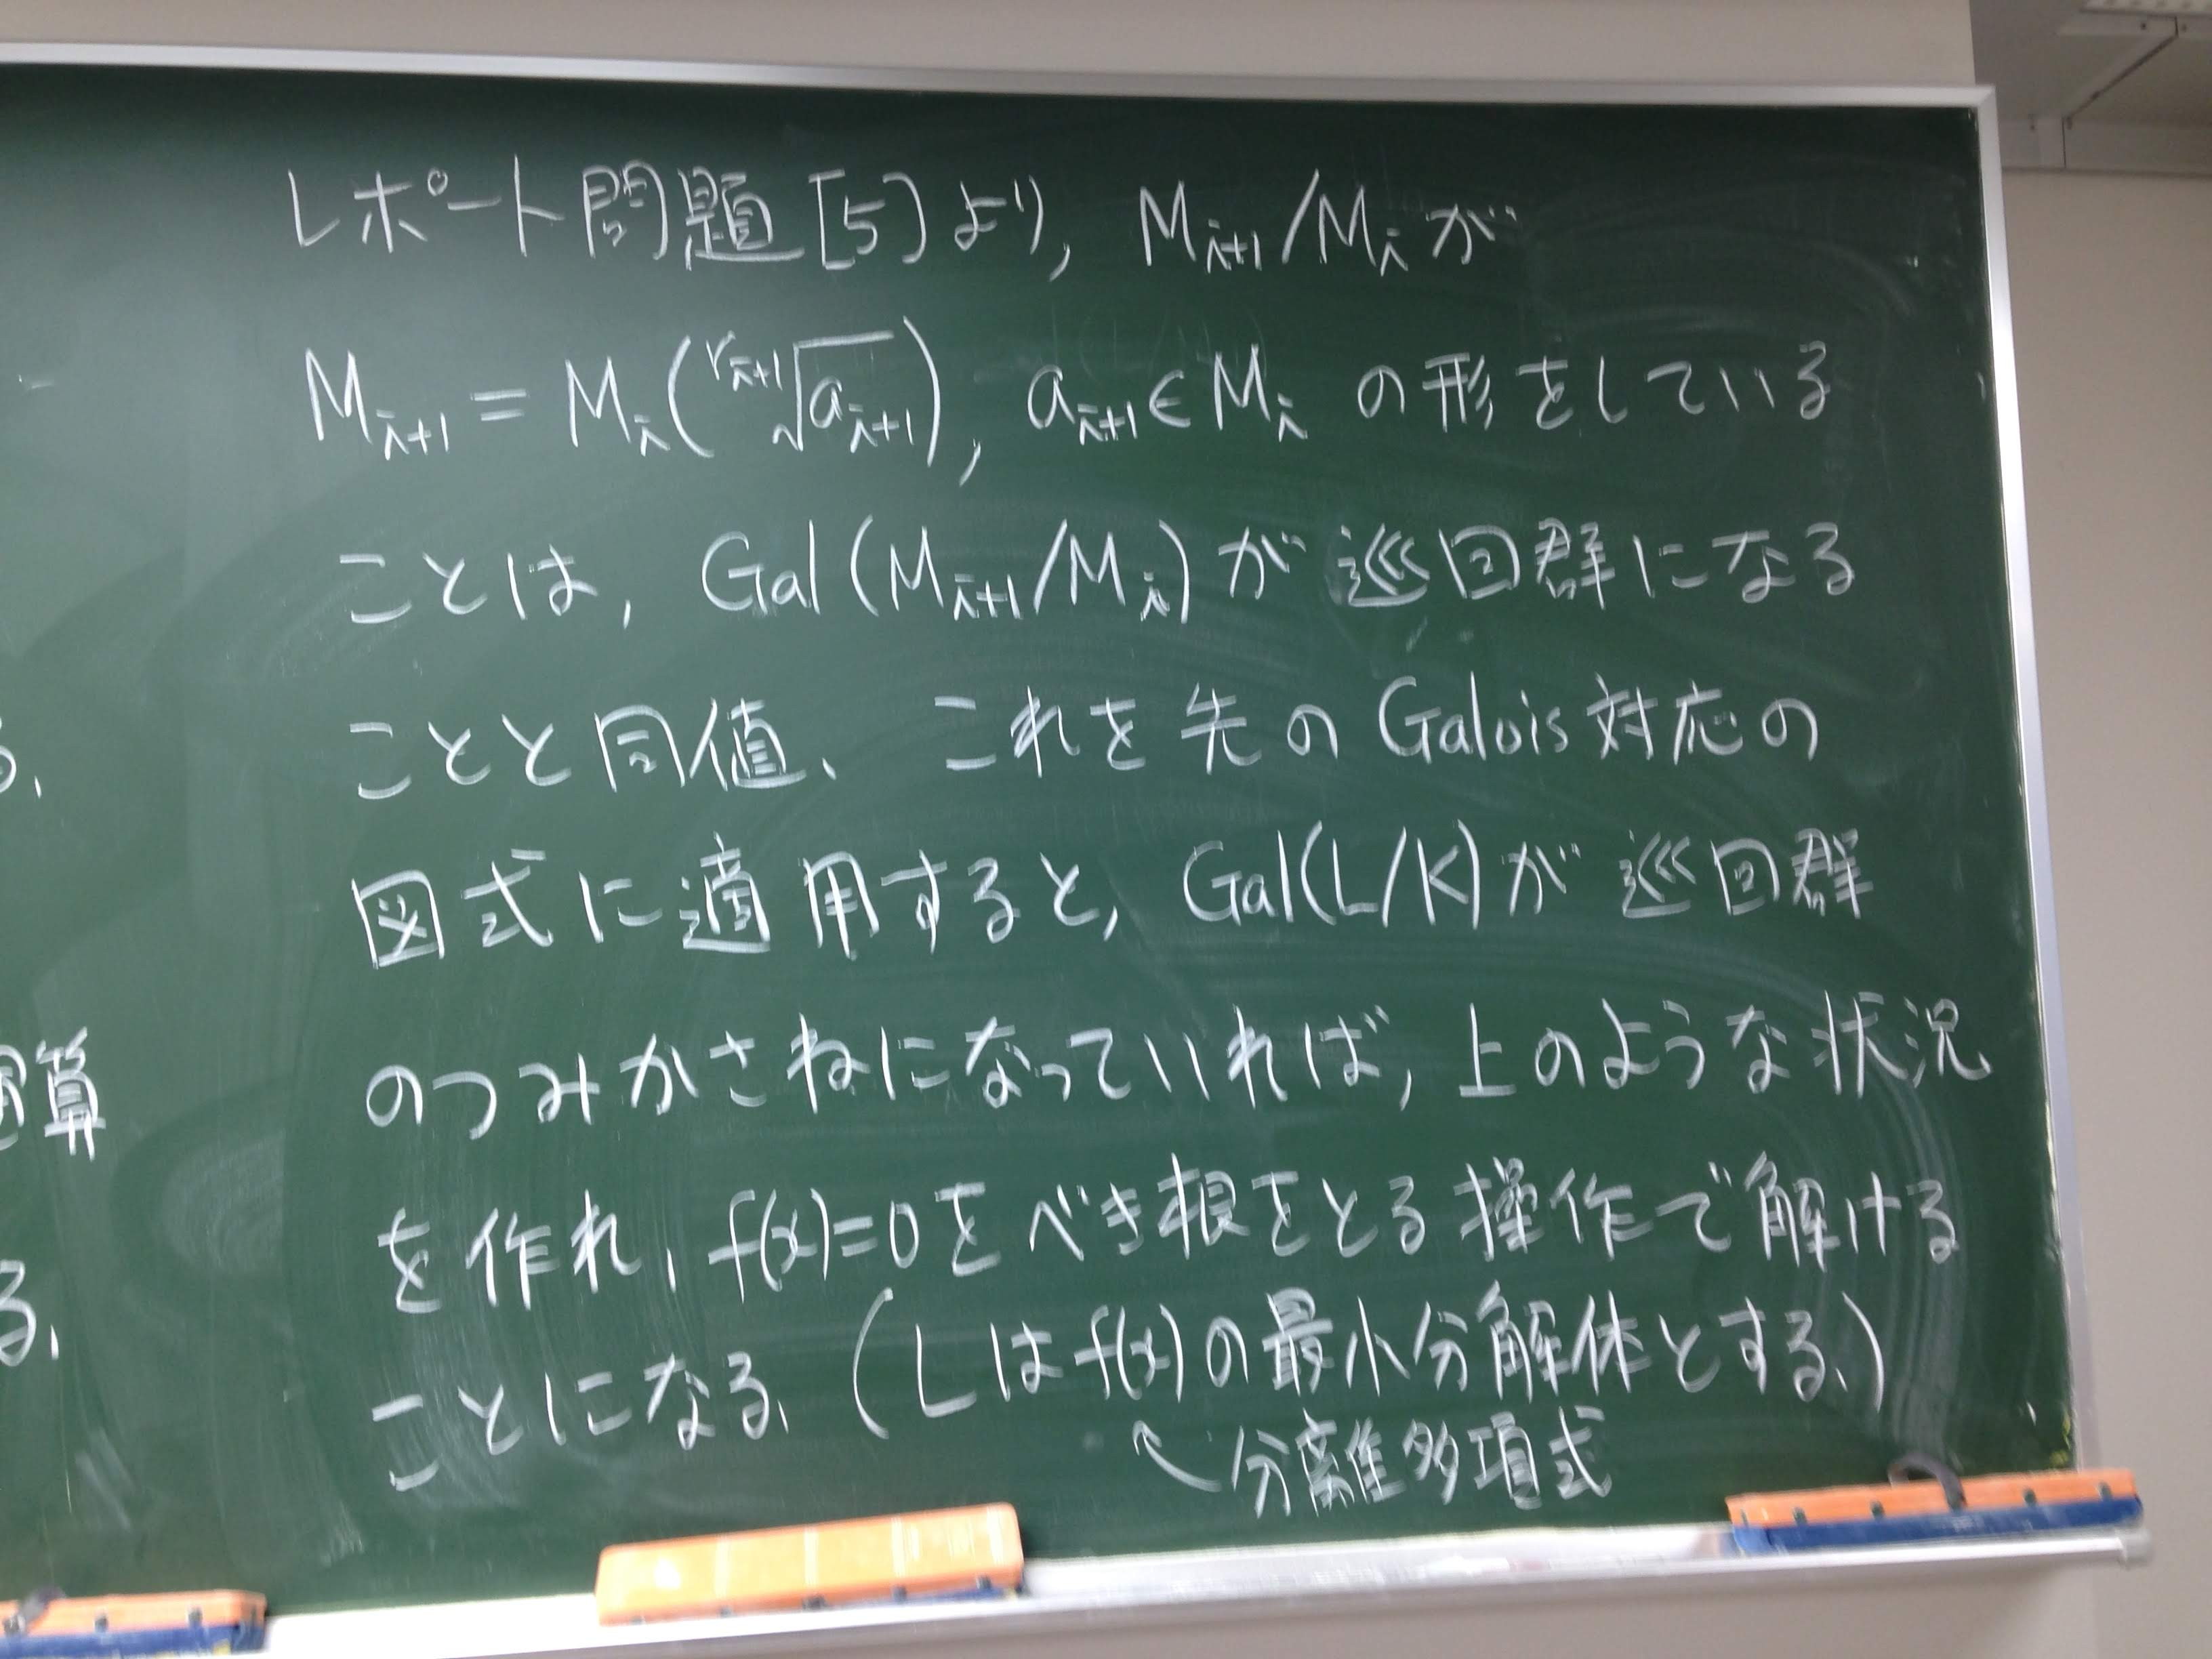 レポート問題[5]より, M_{i+1}/M_i が
M_{i+1} = M_i(\sqrt[r_{i+1}]{a_{i+1}}), a_{i+1}∈M_i の形をしている
ことは, Gal(M_{i+1}/M_i)が巡回群になる
ことと同値、これを先のGalois対応の
図式に適用すると, Gal(L/K)が巡回群
のつみかさねになっていれば, 上のような状況
を作れ, f(x)=0をべき根をとる操作で解ける
ことになる、(Lはf(x)の最小分解体とする、)
↖分離多項式
る、
算
る、